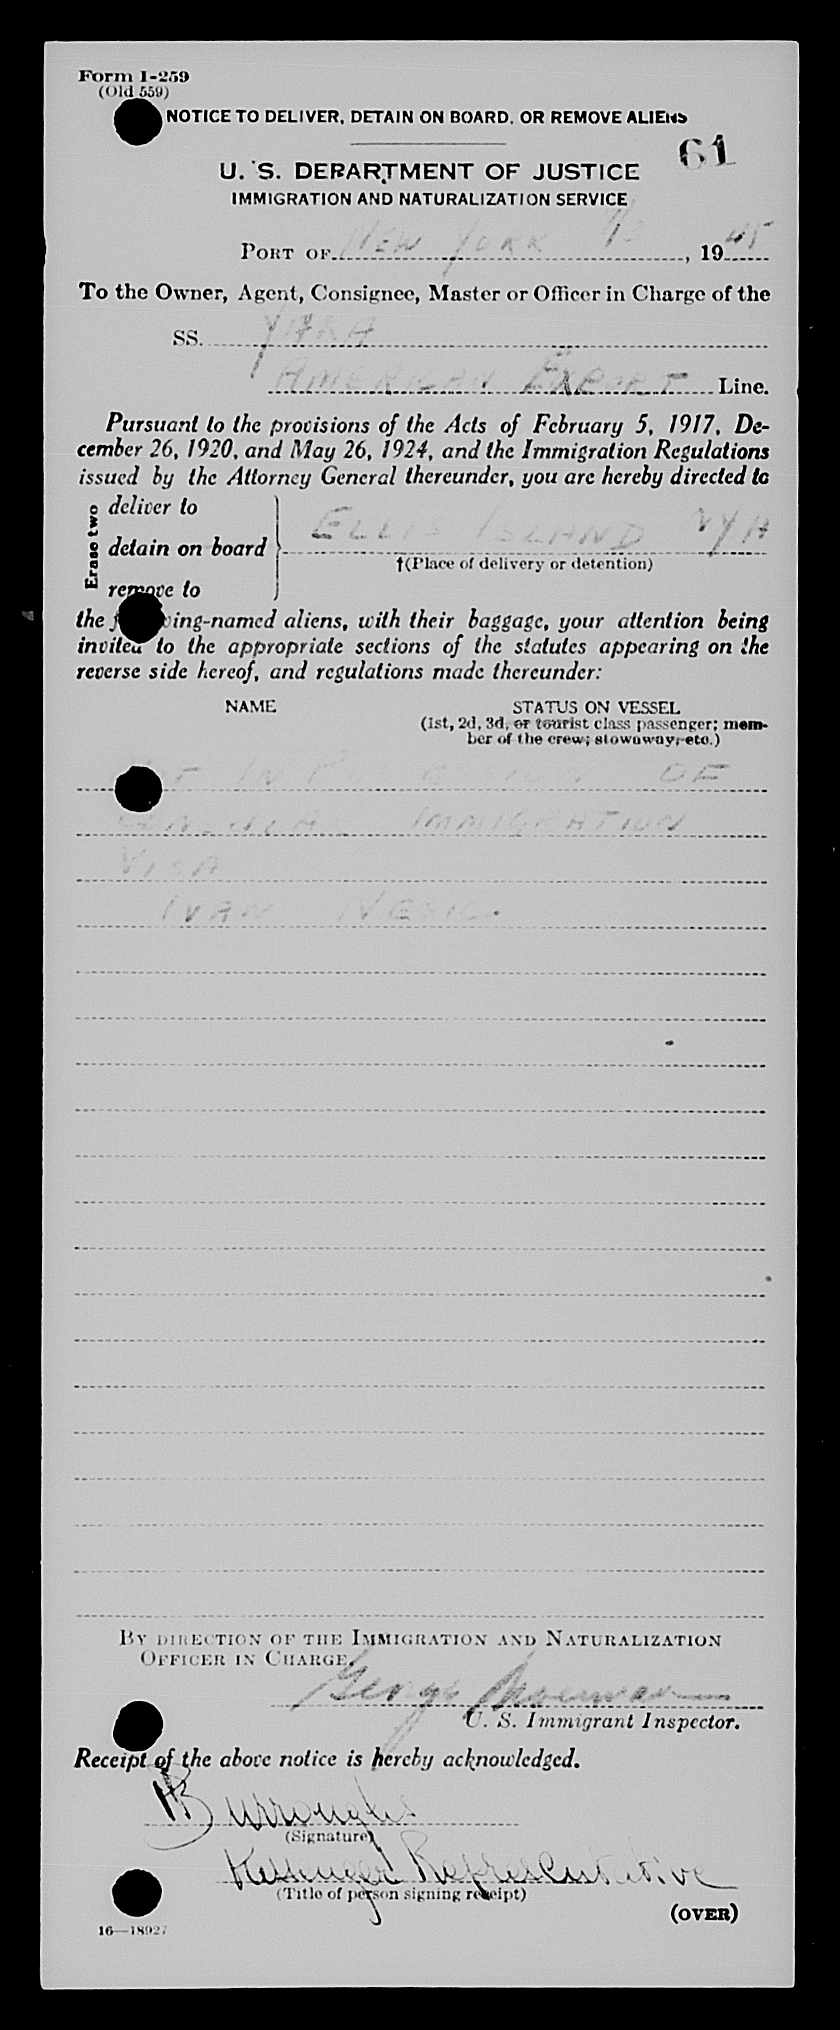 Form I-259
(Old 559)
NOTICE TO DELIVER, DETAIN ON BOARD, OR REMOVE ALIENS
61
U. S. DEPARTMENT OF JUSTICE
IMMIGRATION AND NATURALIZATION SERVICE
PORT OF NEW YORK, 1945
To the Owner, Agent, Consignee, Master or Officer in Charge of the
SS. YAKA
AMERICAN EXPORT Line.
Pursuant to the provisions of the Acts of February 5, 1917, De-
cember 26, 1920, and May 26, 1924, and the Immigration Regulations
issued by the Attorney General thereunder, you are hereby directed to
Erase two
deliver to
detain on board
remove to
ELLIS ISLAND NYH
†(Place of delivery or detention)
the following-named aliens, with their baggage, your attention being
invited to the appropriate sections of the statutes appearing on the
reverse side hereof, and regulations made thereunder:
NAME STATUS ON VESSEL
(1st, 2d, 3d, or tourist class passenger; mem-
ber of the crew; stowaway, etc.)
IN OF
IMMIGRATION
VISA
IVAN
BY DIRECTION OF THE IMMIGRATION AND NATURALIZATION
OFFICER IN CHARGE.
George
U. S. Immigrant Inspector.
Receipt of the above notice is hereby acknowledged.
Burroughs
(Signature)
Passenger Representative
(Title of person signing receipt)
(OVER)
16—18927